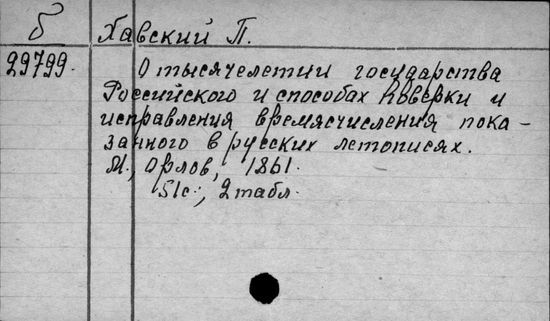 б Хавский П.
29799. О тысячелетии государства
Российского и способах поверки и
исправления времясчисления пока-
занного в русских летописях.
М., Орлов, 1861.
51с., 2 табл.